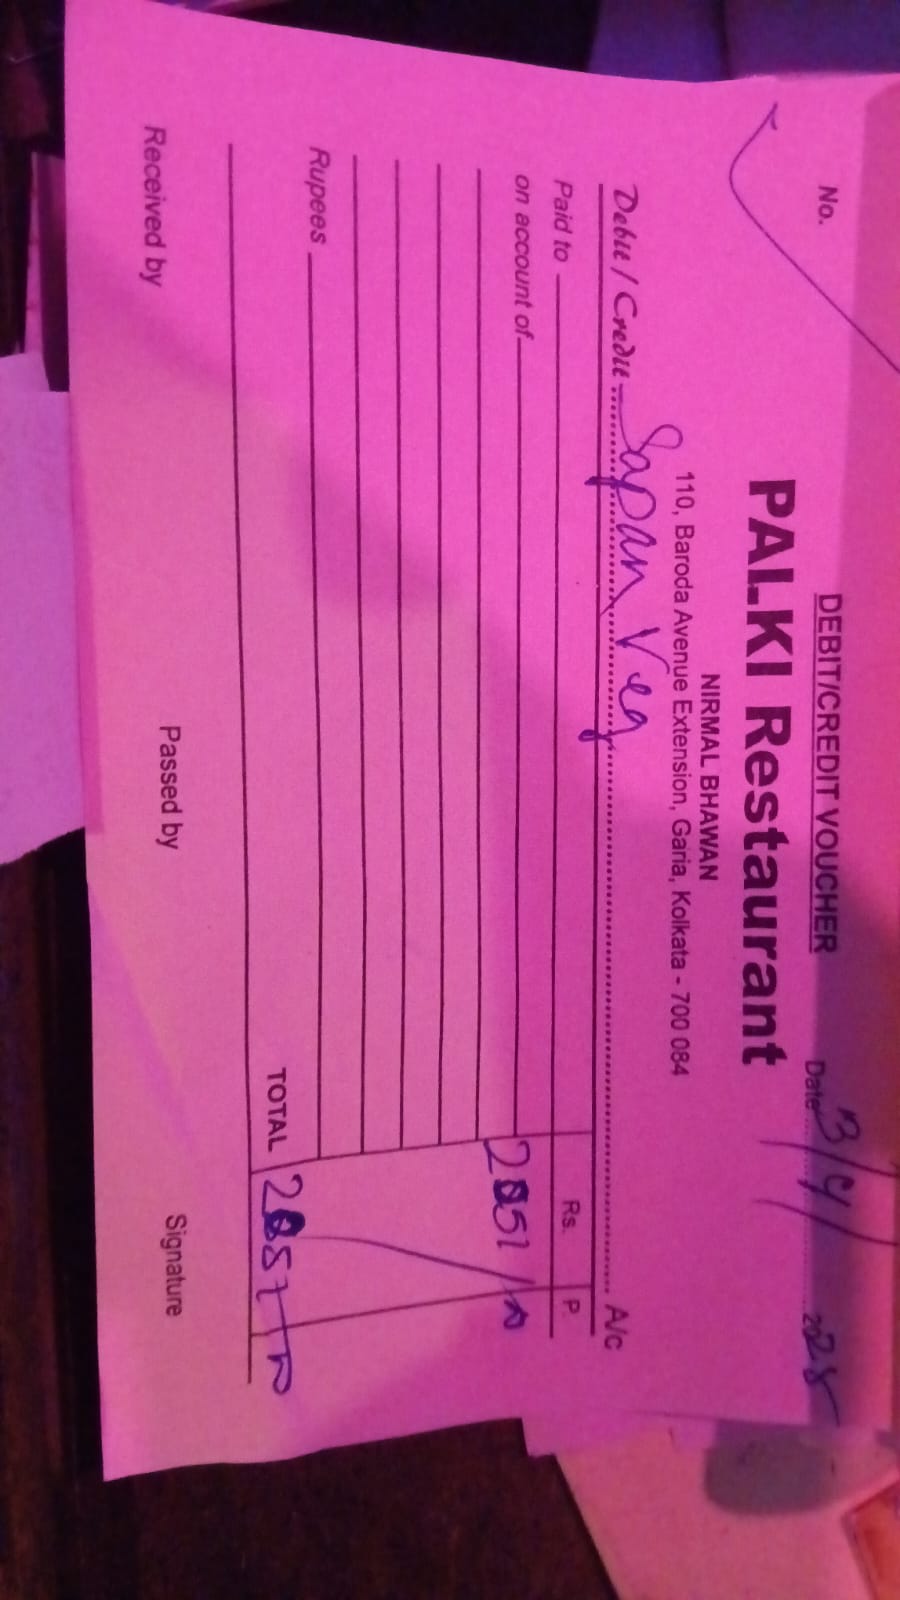 DEBIT/CREDIT VOUCHER
No. Date 3/4/ 2025
PALKI Restaurant
NIRMAL BHAWAN
110, Baroda Avenue Extension, Garia, Kolkata - 700 084
Debit / Credit Sapan Veg A/c
Paid to Rs. P.
on account of 2051
Rupees
TOTAL 2051
Received by Passed by Signature